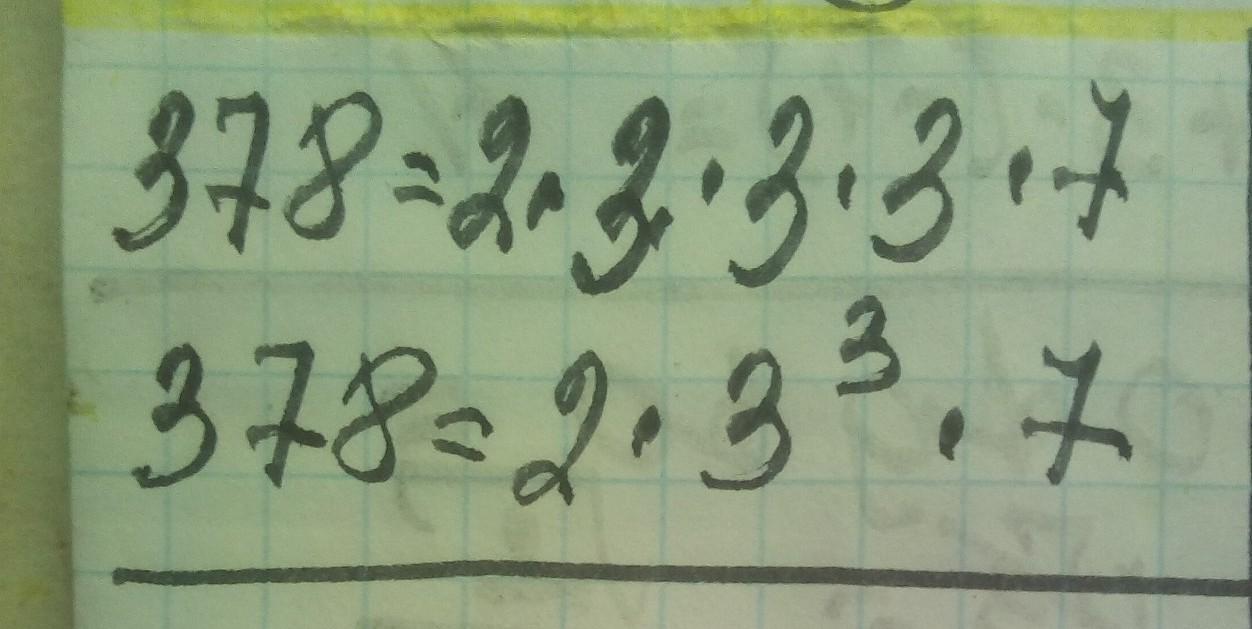 378=2·3·3·3·7
378=2·3³·7